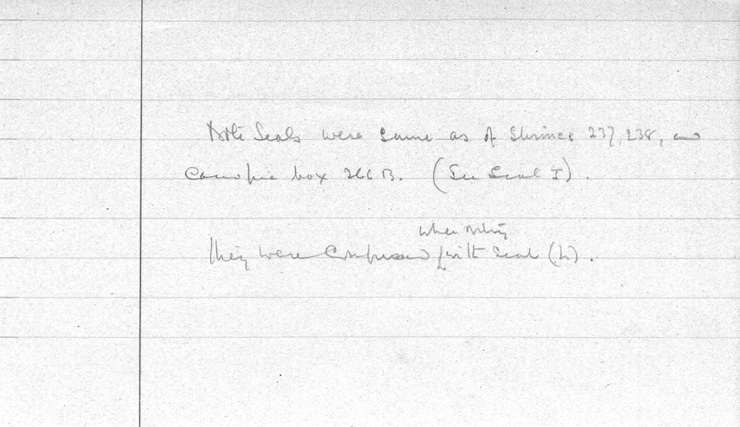 Both Seals were same as of Shrines 237, 238, and
Canopic box 266 B. (See Seal I).
when noting
They were confused with Seal (h).